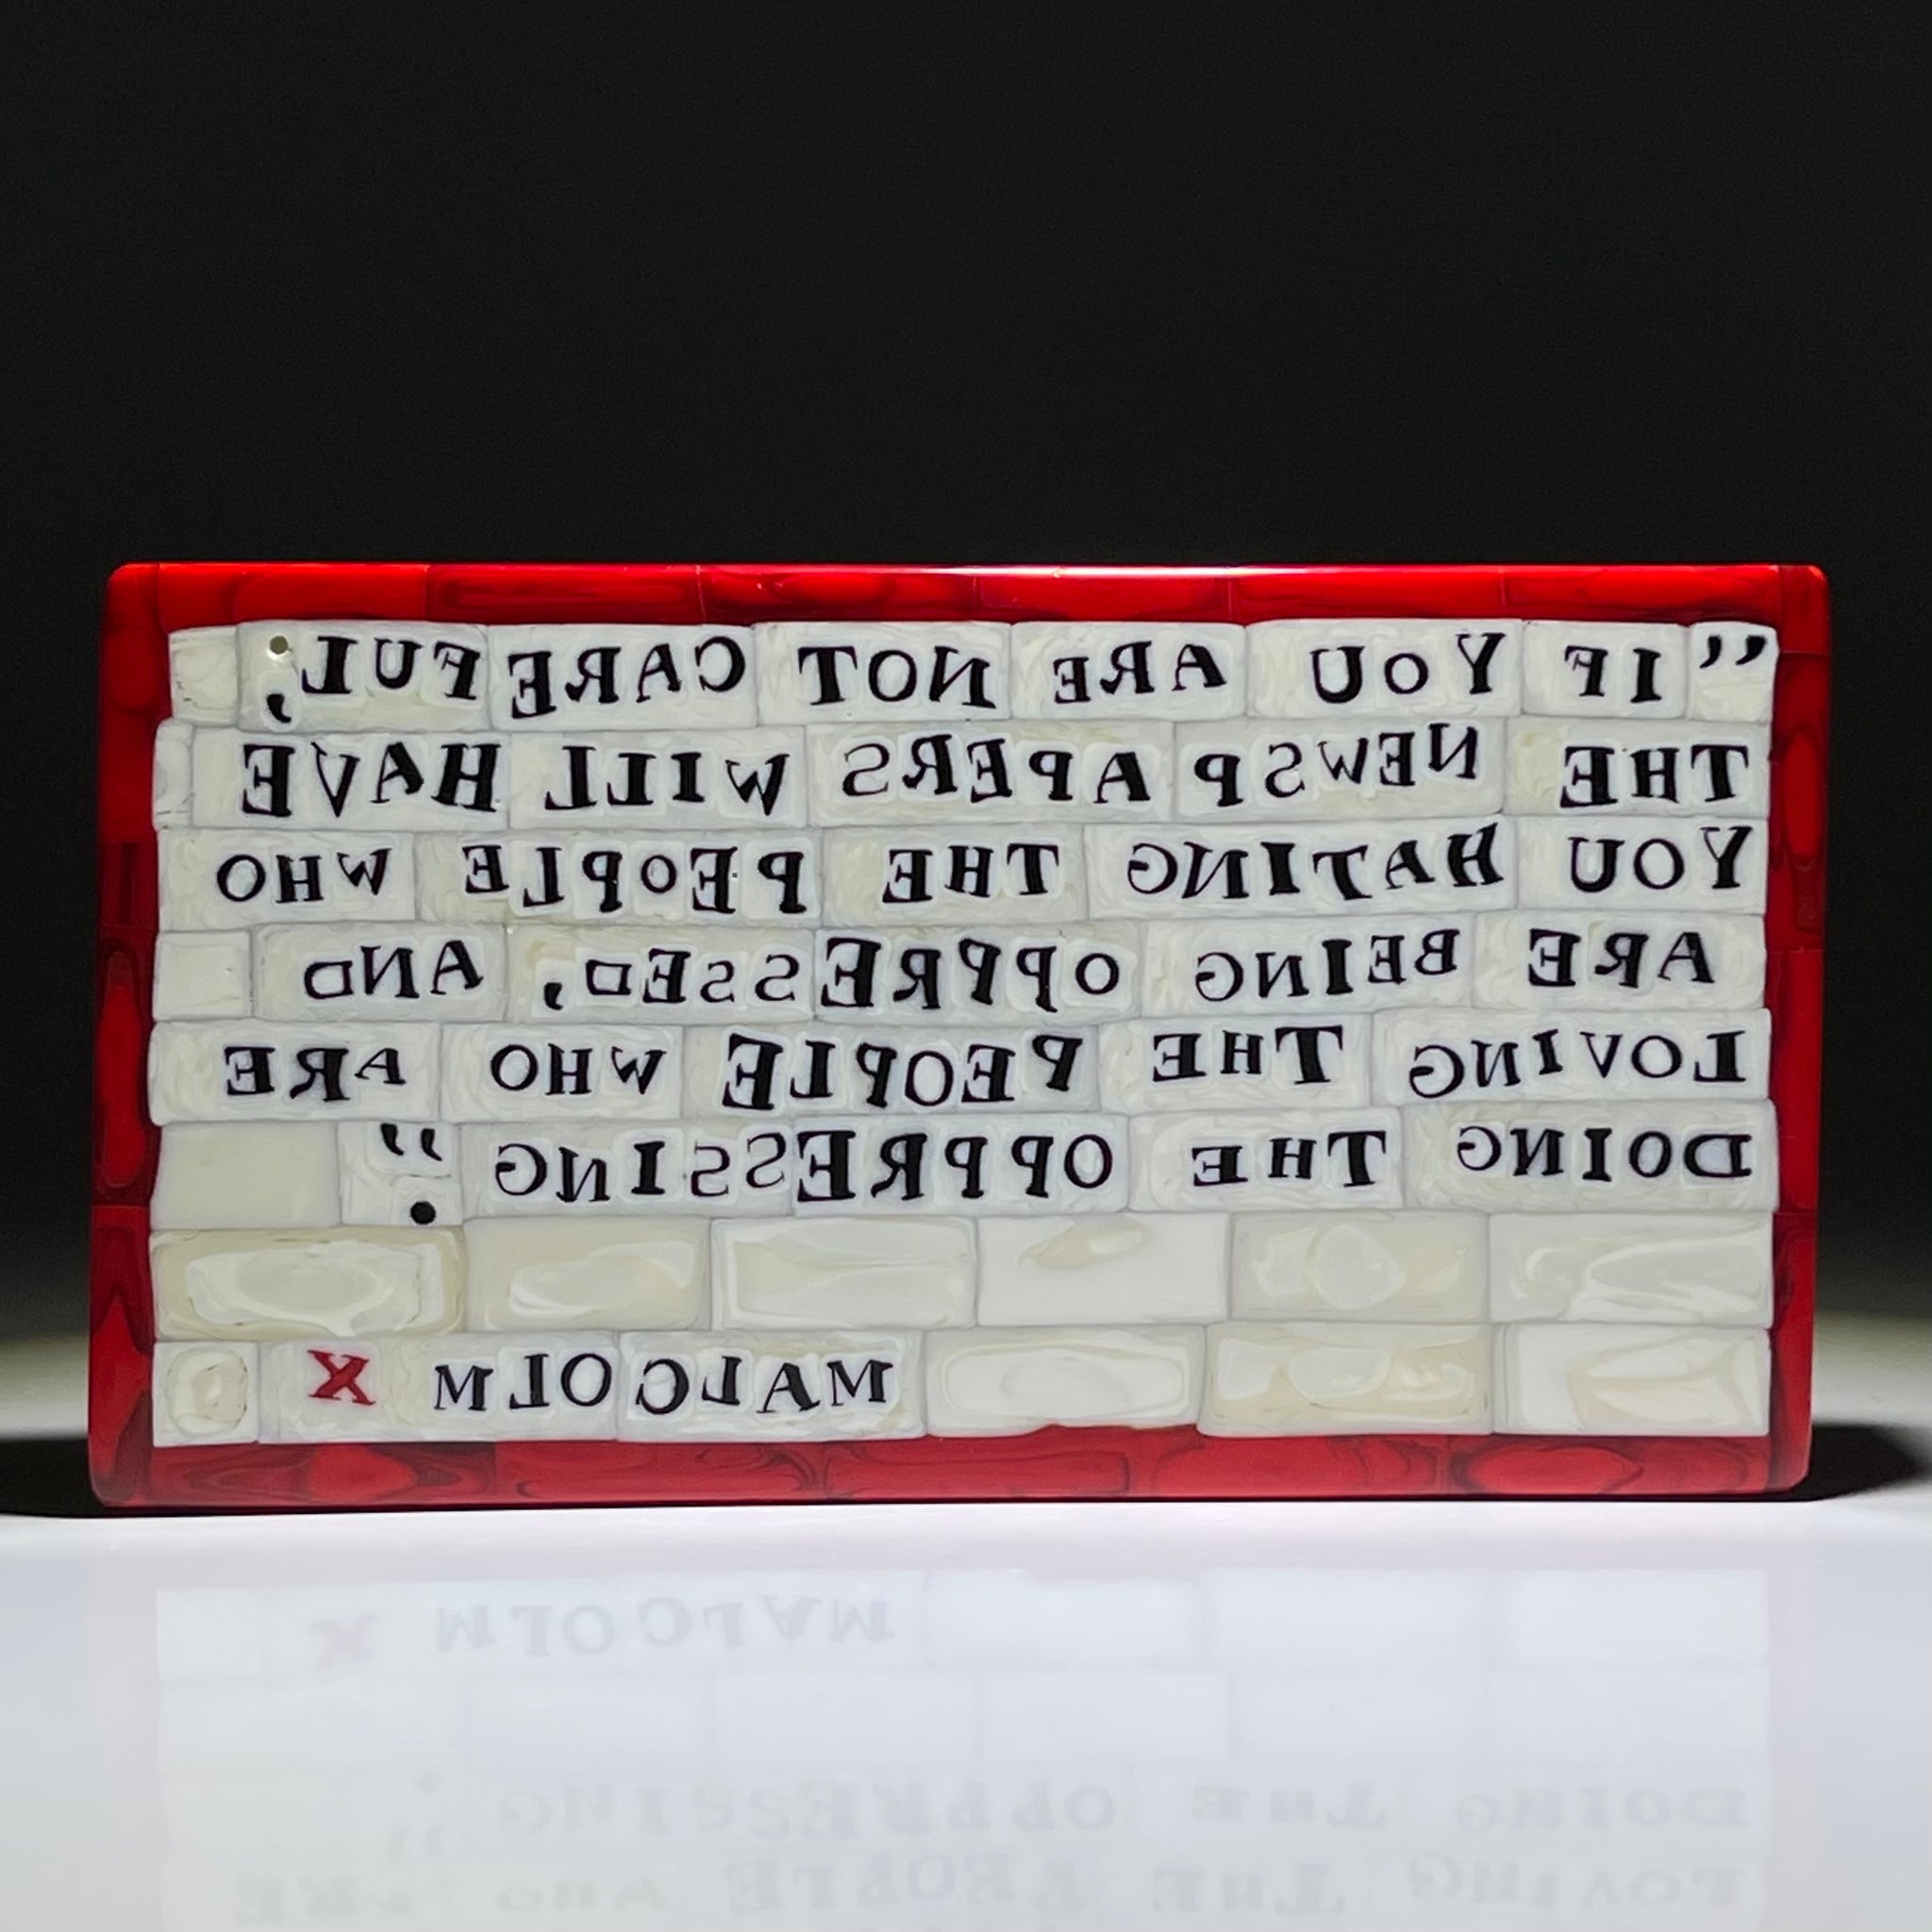 "IF YOU ARE NOT CAREFUL,
THE NEWSPAPERS WILL HAVE
YOU HATING THE PEOPLE WHO
ARE BEING OPPRESSED, AND
LOVING THE PEOPLE WHO ARE
DOING THE OPPRESSING."
MALCOLM X